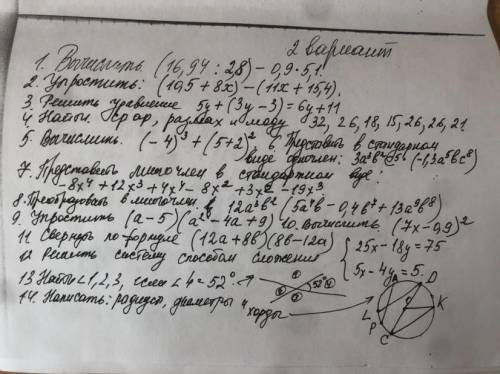 2 вариант
1. Вычислить (16,94 : 2,8) − 0,9 · 5,1.
2. Упростить: (10,5 + 8x) − (11x + 15,4).
3. Решить уравнение 5y + (3y − 3) = 6y + 11
4. Найти ср ар, размах и моду 32, 26, 18, 15, 26, 26, 21
5. Вычислить. (−4)³ + (5+2)² 6. Представить в стандартном
виде одночлен:
7. Представить многочлен в стандартном виде:
−8x⁴ + 12x³ + 4x⁴ − 8x² + 3x² − 19x³
8. Преобразовать в многочлен. 12a³b² (5a⁴b − 0,4b⁷ + 13a⁹b⁸)
9. Упростить (a − 5)(a² − 4a + 9) 10. Вычислить (7x − 0,9)²
11. Свернуть по формуле (12a + 8b)(8b − 12a)
12. Решить систему способом сложения { 25x − 18y = 75
5x − 4y = 5.
13. Найти ∠1, 2, 3, если ∠4 = 52°. 52°
14. Написать: радиусы, диаметры и
хорды
D
K
L
P
C